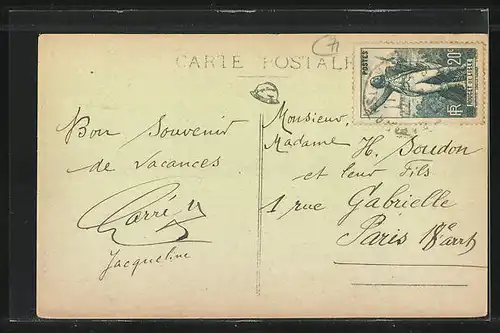 CARTE POSTALE
71
POSTES
20c
ROUGET DE LISLE
RF
Bon Souvenir
de Vacances
Jacqueline
Monsieur,
Madame H. Soudon
et leur Fils
1 rue Gabrielle
Paris 18e arrt